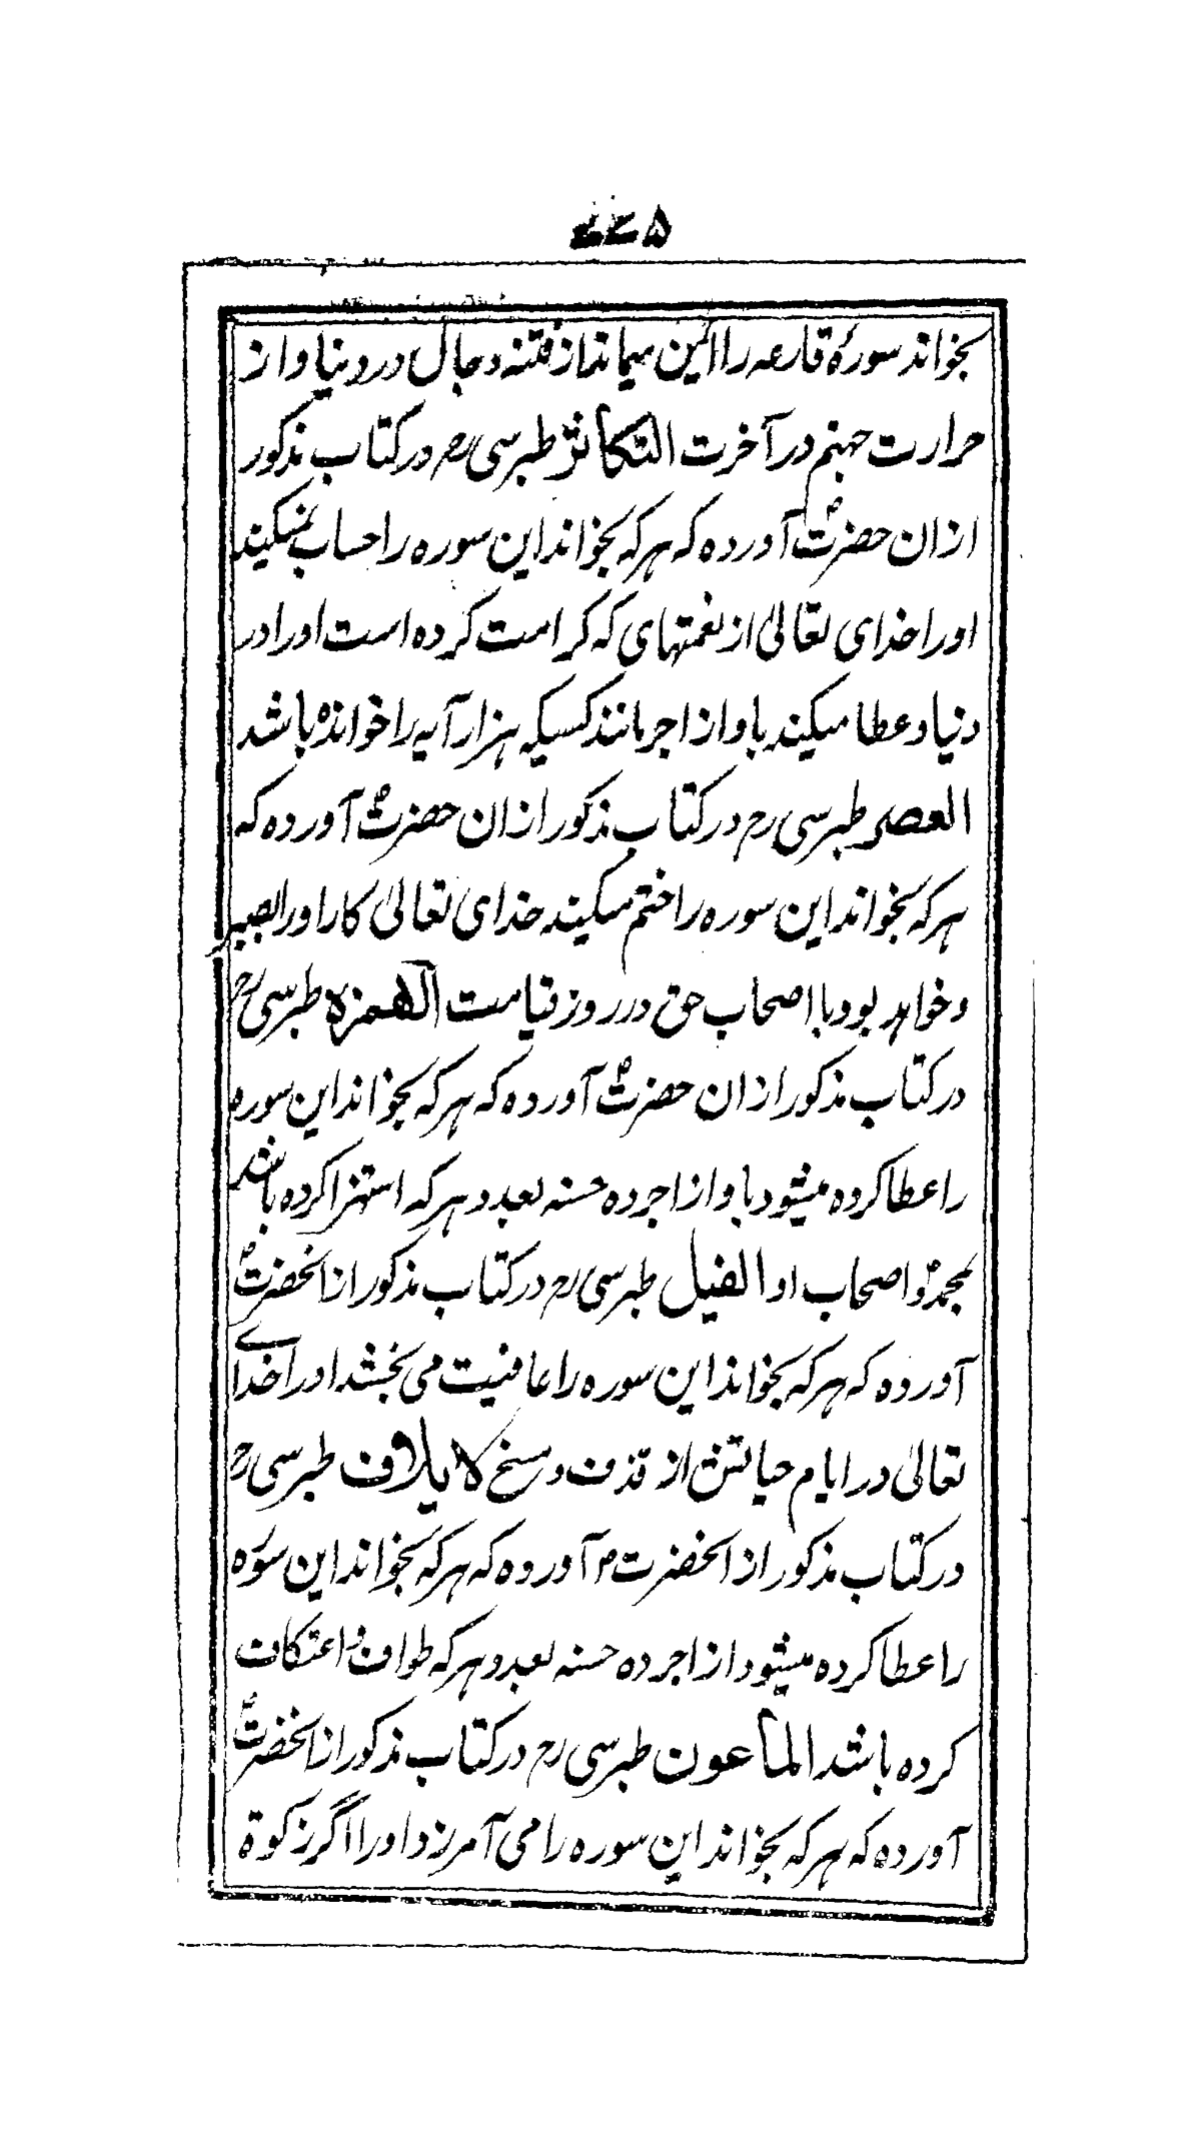 بخواند سورۂ قارعہ را ایمن میماند از فتنہ دجال در دنیا و از
حرارت جہنم در آخرت التکاثر طبرسی رح در کتاب مذکور
از ان حضرتؐ آوردہ کہ ہر کہ بخواند این سورہ را حساب نمیکند
او را خدای تعالیٰ از نعمتہای کہ کرامت کردہ است او را در
دنیا و عطا میکند باو از اجر مانند کسیکہ ہزار آیہ را خواندہ باشد
العصر طبرسی رح در کتاب مذکور از ان حضرتؐ آوردہ کہ
ہر کہ بخواند این سورہ را ختم میکند خدای تعالیٰ کار او را بصبر
و خواہد بود با اصحاب حق در روز قیامت الھمزہ طبرسی رح
در کتاب مذکور از ان حضرتؐ آوردہ کہ ہر کہ بخواند این سورہ
را عطا کردہ میشود باو از اجر دہ حسنہ بعدد ہر کہ استہزا کردہ باشد
بمحمدؐ و اصحاب او الفیل طبرسی رح در کتاب مذکور از انحضرتؐ
آوردہ کہ ہر کہ بخواند این سورہ را عافیت می بخشد او را خدای
تعالیٰ در ایام حیاتش از قذف و مسخ لایلاف طبرسی رح
در کتاب مذکور از انحضرت م آوردہ کہ ہر کہ بخواند این سورہ
را عطا کردہ میشود از اجر دہ حسنہ بعدد ہر کہ طواف و اعتکاف
کردہ باشد الماعون طبرسی رح در کتاب مذکور از انحضرتؐ
آوردہ کہ ہر کہ بخواند این سورہ را می آمرزد او را اگر زکوٰۃ